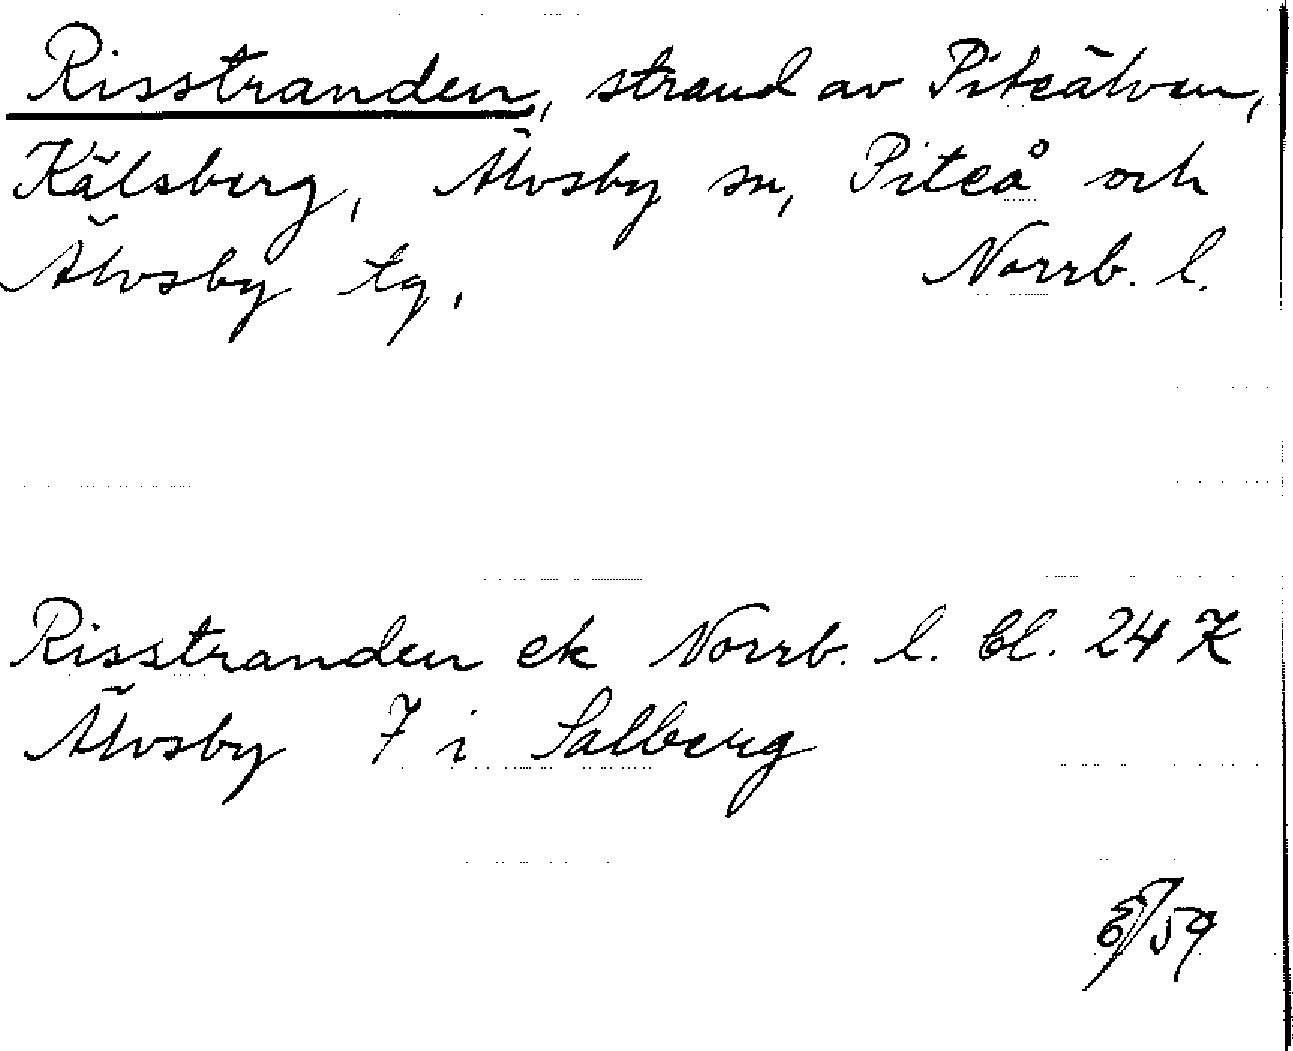 Risstranden, strand av Piteälven,
Kälsberg, Älvsby sn, Piteå och
Älvsby tg, Norrb. l.
Risstranden ek Norrb. l. bl. 24 K
Älvsby 7 i Salberg
/59